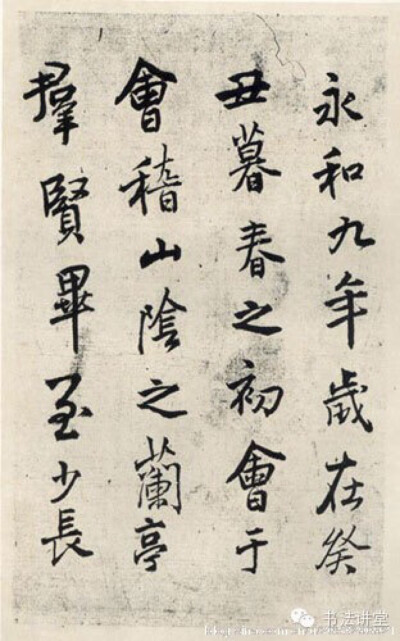 永和九年歲在癸
丑暮春之初會于
會稽山陰之蘭亭
群賢畢至少長
书法讲堂